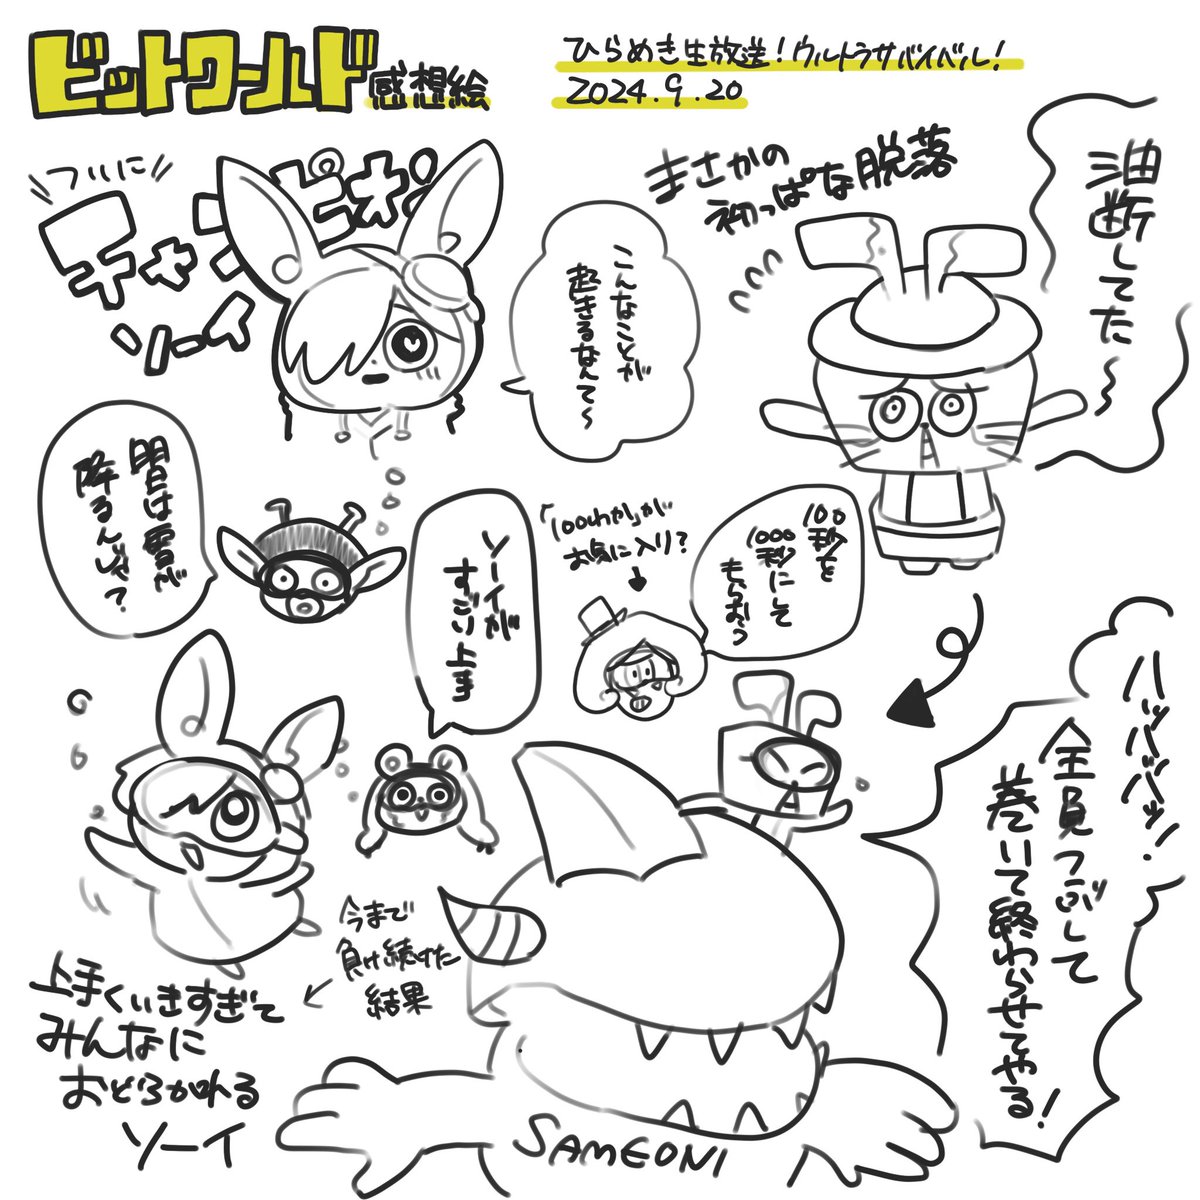 ビットワールド
感想絵
ひらめき生放送！ウルトラサバイバル！
2024.9.20
ついに
チャンピオン
ソーイ
まさかの
初っぱな脱落
油断してた〜
こんなことが
起きるなんて〜
明日は雪が
降るんじゃ？
ソーイが
すごい上手
「100わか」が
お気に入り？
100秒を
1000秒にして
もらおう
ハッハッハッ！
全員つぶして
巻いて終わらせてやる！
今まで
負け続けた
結果
上手くいきすぎて
みんなに
おどろかれる
ソーイ
SAMEONI